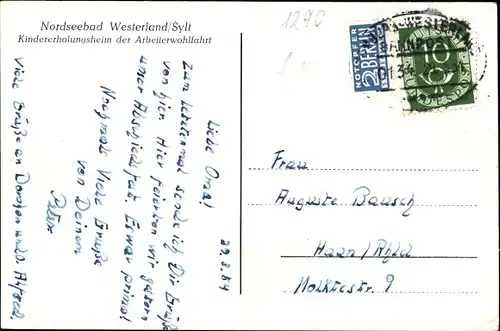 Nordseebad Westerland/Sylt
Kindererholungsheim der Arbeiterwohlfahrt
1270
NOTOPFER
2 BERLIN
STEUERMARKE
BAHNPOST
10
DEUTSCHE POST
29.8.54
Liebe Oma!
Zum letztenmal sende ich Dir Grüße
von hier. Hier feierten wir gestern
unser Abschiedsfest. Es war prima!
Nochmals Viele Grüße
von Deinem
Peter
Viele Grüße an und
Frau
Auguste Bausch
Haan/Rhld
Moltkestr. 9